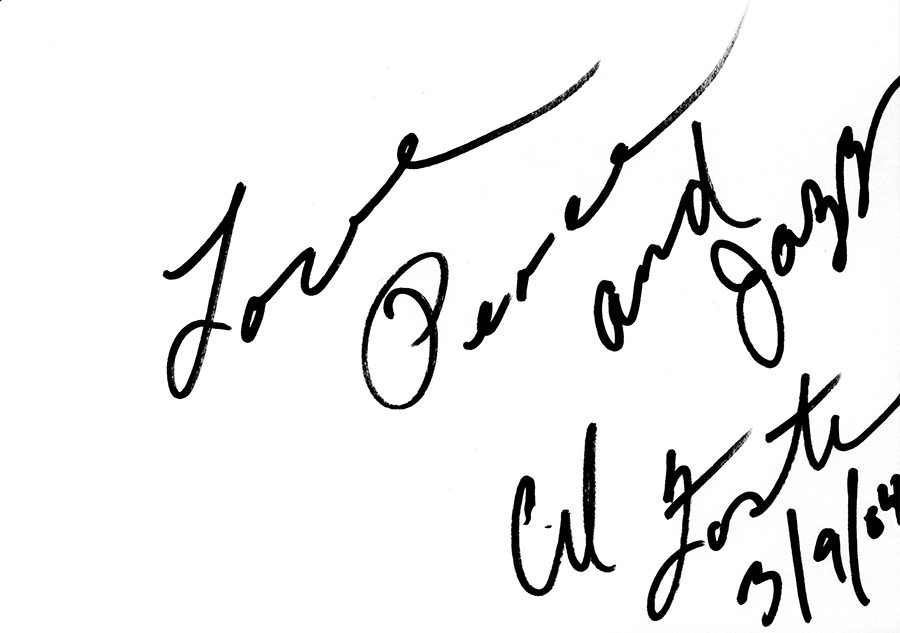 Love Peace and Jazz
Al Foster
3/9/04